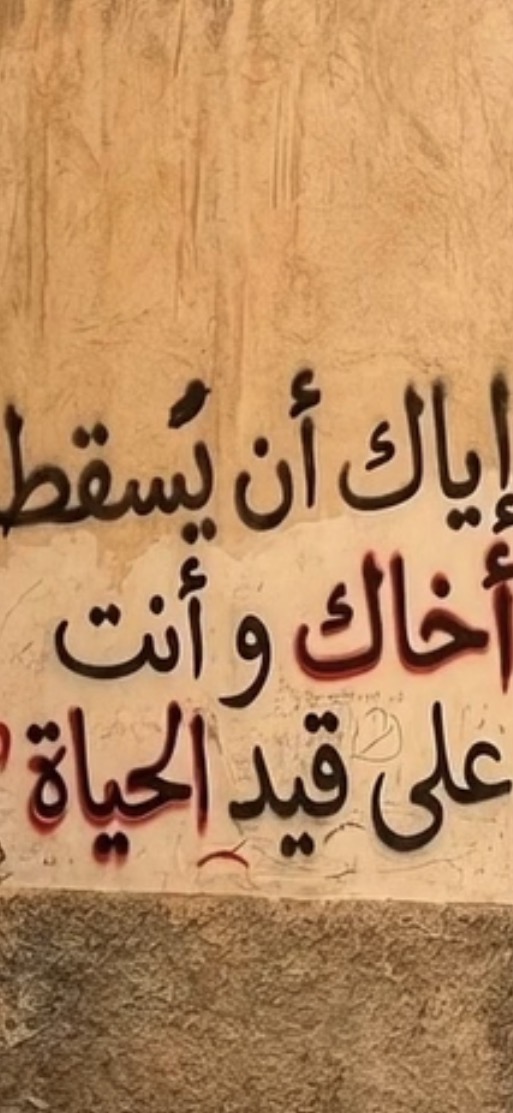 إياك أن يُسقط
أخاك و أنت
على قيد الحياة